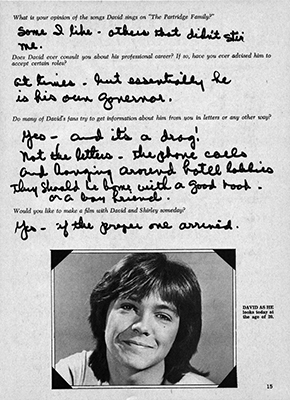 What is your opinion of the songs David sings on "The Partridge Family?"
Some I like - others that didn't stir
me.
Does David ever consult you about his professional career? If so, have you ever advised him to
accept certain roles?
At times - but essentially he
is his own governor.
Do many of David's fans try to get information about him from you in letters or any other way?
Yes - and it's a drag!
Not the letters - the phone calls
and hanging around hotel lobbies
They should be home with a good book -
or a boy friend.
Would you like to make a film with David and Shirley someday?
Yes - if the proper one arrived.
DAVID AS HE
looks today at
the age of 20.
15